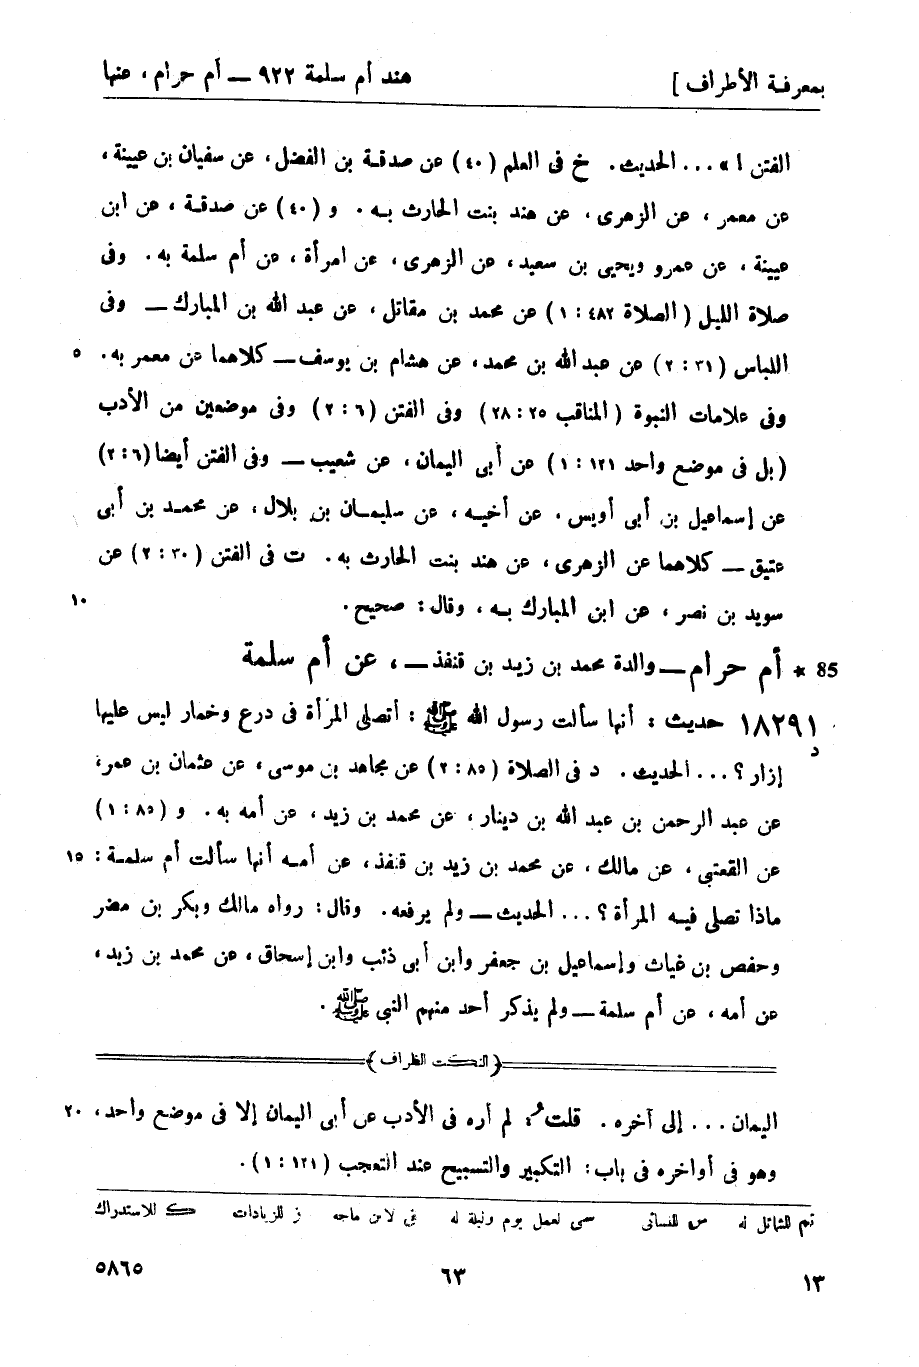 بمعرفة الأطراف ] هند أم سلمة ٩٢٢ ــ أم حرام ، عنها
الفتن ا » ... الحديث . خ فى العلم ( ٤٠ ) عن صدقة بن الفضل ، عن سفيان بن عيينة ،
عن معمر ، عن الزهرى ، عن هند بنت الحارث بـه . و ( ٤٠ ) عن صدقة ، عن ابن
عيينة ، عن عمرو ويحيى بن سعيد ، عن الزهرى ، عن امرأة ، عن أم سلمة به . وفى
صلاة الليل ( الصلاة ٤٨٢ : ١ ) عن محمد بن مقاتل ، عن عبد الله بن المبارك ــ وفى
اللباس ( ٣١ : ٢ ) عن عبد الله بن محمد ، عن هشام بن يوسف ــ كلاهما عن معمر به . ٥
وفى علامات النبوة ( المناقب ٢٥ : ٢٨ ) وفى الفتن ( ٦ : ٢ ) وفى موضعين من الأدب
( بل فى موضع واحد ١٢١ : ١ ) عن أبى اليمان ، عن شعيب ــ وفى الفتن أيضا ( ٦ : ٢ )
عن إسماعيل بن أبى أويس ، عن أخيـه ، عن سليمـان بن بلال ، عن محمـد بن أبى
عتيق ــ كلاهما عن الزهرى ، عن هند بنت الحارث به . ت فى الفتن ( ٣٠ : ٢ ) عن
سويد بن نصر ، عن ابن المبارك بـه ، وقال : صحيح . ١٠
85 * أم حرام ــ والدة محمد بن زيد بن قنفذ ــ ، عن أم سلمة
١٨٢٩١ حديث : أنها سألت رسول الله ﷺ : أتصلى المرأة فى درع وخمار ليس عليها
د
إزار ؟ ... الحديث . د فى الصلاة ( ٨٥ : ٢ ) عن مجاهد بن موسى ، عن عثمان بن عمر ،
عن عبد الرحمن بن عبد الله بن دينار ، عن محمد بن زيد ، عن أمه به . و ( ٨٥ : ١ )
عن القعنبى ، عن مالك ، عن محمد بن زيد بن قنفذ ، عن أمـه أنها سألت أم سلمـة : ١٥
ماذا تصلى فيـه المرأة ؟ ... الحديث ــ ولم يرفعه . وقال : رواه مالك وبكر بن مضر
وحفص بن غياث وإسماعيل بن جعفر وابن أبى ذئب وابن إسحاق ، عن محمـد بن زيد ،
عن أمه ، عن أم سلمة ــ ولم يذكر أحد منهم النبى ﷺ .
( النكت الظراف )
اليمان ... إلى آخره . قلت : لم أره فى الأدب عن أبى اليمان إلا فى موضع واحد ، ٢٠
وهو فى أواخره فى باب : التكبير والتسبيح عند التعجب ( ١٢١ : ١ ) .
تم للشمائل له س للنسائى سى لعمل يوم وليلة له ق لابن ماجه ز للزيادات ك للاستدراك
١٣ ٦٣ ٥٨٦٥